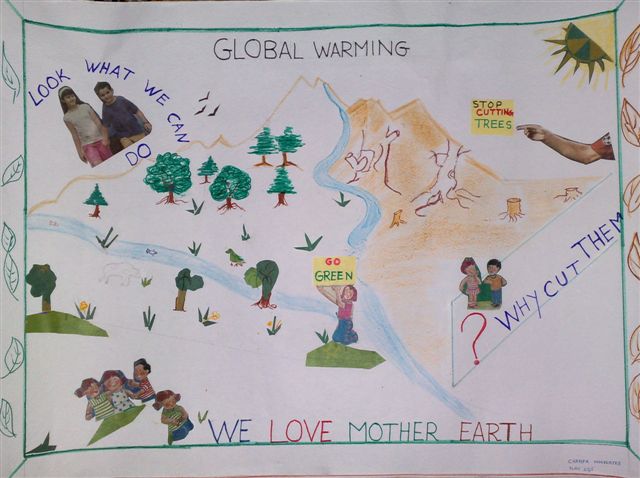 GLOBAL WARMING
LOOK WHAT WE CAN DO
STOP
CUTTING
TREES
GO
GREEN
WHY CUT THEM
?
WE LOVE MOTHER EARTH